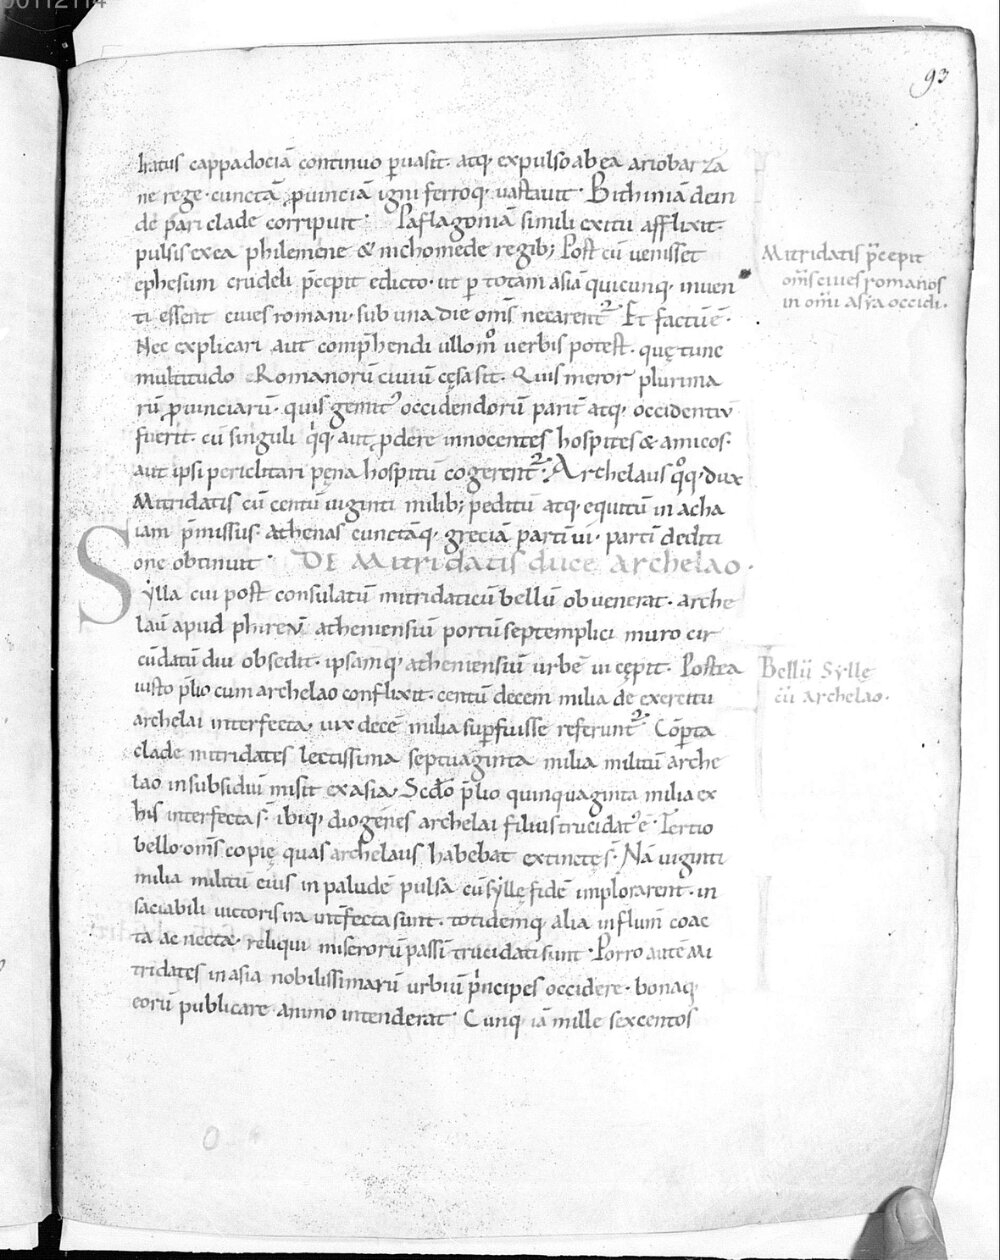 93
hatus cappadociā continuo ꝑuasit· atq; expulso ab ea ariobarza
ne rege· cunctā ꝓuinciā igni ferroq; uastauit· Bithiniā dein
de pari clade corripuit· Paflagoniā simili exitu afflixit·
pulsis ex ea philemene & nichomede regib; Post cū uenisset
ephesum crudeli p̄cepit edicto· ut ꝑ totam asiā quicunq; inuen
ti essent ciues romani· sub una die om̄s necarent᷑ Et factū ē·
Nec explicari aut comp̄hendi ullo m̊ uerbis potest· quę tunc
multitudo Romanorū ciuiū cęsa sit. Quis meror plurima
rū ꝓuinciarū· quis gemit᷒ occidendorū parit̄ atq; occidentiū
fuerit· cū singuli q̊q; aut ꝓdere innocentes hospites & amicos·
aut ipsi periclitari pęna hospitū cogerent᷑· Archelaus q̊q; dux
Mitridatis cū centū uiginti milib; peditū atq; equitū in acha
iam p̄missus· athenas cunctāq; greciā partī ui· partī dediti
one obtinuit· DE Mitridatis duce archelao·
Sylla cui post consulatū mitridaticū bellū obuenerat· arche
laū apud phireū atheniensiū portū septemplici muro cir
cūdatū diu obsedit· ipsamq; atheniensiū urbē ui cępit· Postea
iusto p̄lio cum archelao conflixit· centū decem milia de exercitu
archelai interfecta, uix decē milia suꝑfuisse referunt᷑ Cōꝑta
clade mitridates lectissima septuaginta milia militū arche
lao in subsidiū misit ex asia, Scd̄o p̄lio quinquaginta milia ex
his interfecta s̄· ibiq; diogenes archelai filius trucidat᷒ ē· Tertio
bello· om̄s copię quas archelaus habebat extinctę s̄· Nā uiginti
milia militū eius in paludē pulsa cū syllę fidē implorarent· in
saciabili uictoris ira int̄fecta sunt· totidemq; alia in flum̄ coac
ta ac necta· reliqui miserorū passī trucidati sunt· Porro autē Mi
tridates in asia nobilissimarū urbiū p̄ncipes occidere· bonaq;
eorū publicare animo intenderat· Cunq; iā mille sexcentos
Mitridatis p̄cepit
om̄s ciues romanos
in om̄i asya occidi·
Bellū Syllę
cū archelao·